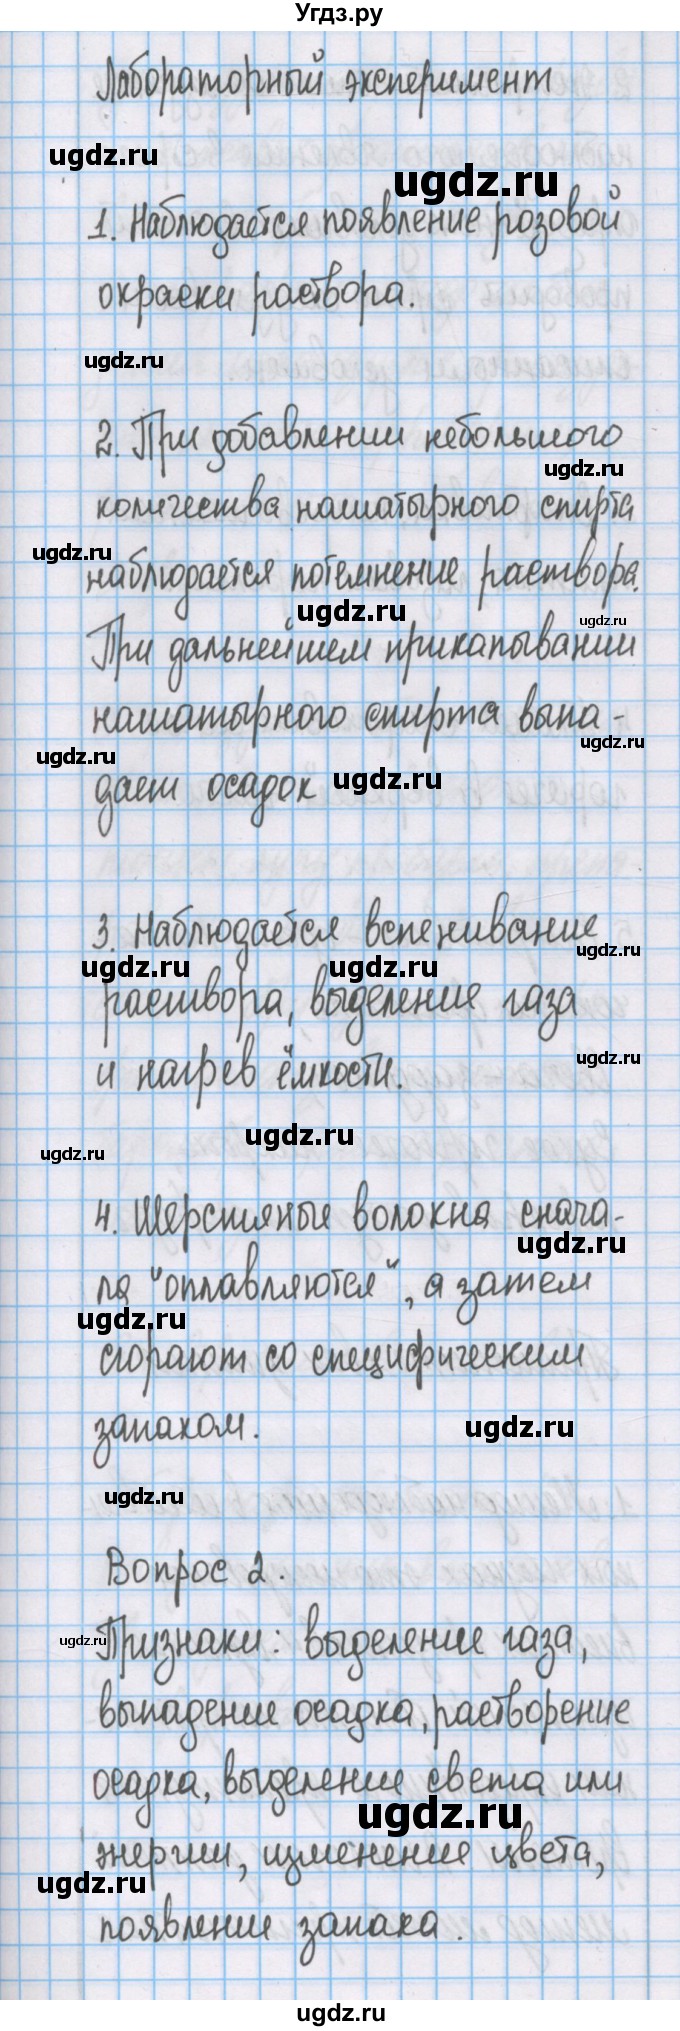 Угдз.ру
Лабораторный эксперимент
ugdz.ru
ugdz.ru
1. Наблюдается появление розовой
окраски раствора.
ugdz.ru
2. При добавлении небольшого
ugdz.ru
количества нашатырного спирта
ugdz.ru
наблюдается потемнение раствора.
ugdz.ru
ugdz.ru
При дальнейшем прикапывании
нашатырного спирта выпа-
ugdz.ru
ugdz.ru
дает осадок
ugdz.ru
3. Наблюдается вспенивание
ugdz.ru
ugdz.ru
ugdz.ru
раствора, выделение газа
и нагрев ёмкости.
ugdz.ru
ugdz.ru
ugdz.ru
4. Шерстяные волокна снача-
ugdz.ru
ла "оплавляются", а затем
ugdz.ru
сгорают со специфическим
запахом.
ugdz.ru
ugdz.ru
Вопрос 2.
ugdz.ru
Признаки: выделение газа,
выпадение осадка, растворение
осадка, выделение света или
ugdz.ru
энергии, изменение цвета,
ugdz.ru
появление запаха.
ugdz.ru